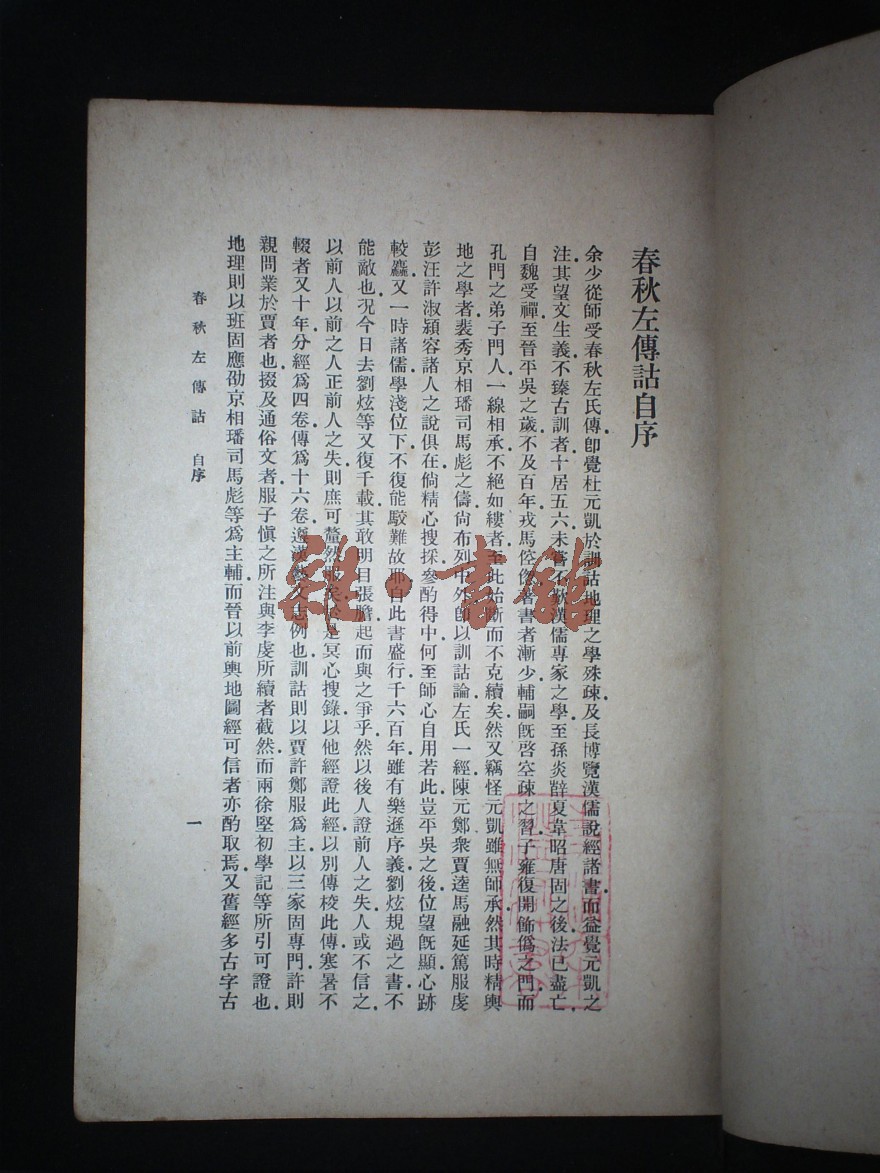 春秋左傳詁自序
余少從師受春秋左氏傳卽覺杜元凱於訓詁地理之學殊疎及長博覽漢儒說經諸書而益覺元凱之
注其望文生義不臻古訓者十居五六未嘗不歎漢儒專家之學至孫炎薛夏韋昭唐固之後法已盡亡
自魏受禪至晉平吳之歲不及百年戎馬倥傯著書者漸少輔嗣旣啓空疎之習子雍復開飾僞之門而
孔門之弟子門人一線相承不絕如縷者至此始斷而不克續矣然又竊怪元凱雖無師承然其時精輿
地之學者裴秀京相璠司馬彪之儔尙布列中外卽以訓詁論左氏一經陳元鄭衆賈逵馬融延篤服虔
彭汪許淑潁容諸人之說俱在倘精心搜採參酌得中何至師心自用若此豈平吳之後位望旣顯心跡
較麤又一時諸儒學淺位下不復能駮難故耶自此書盛行千六百年雖有樂遜序義劉炫規過之書不
能敵也况今日去劉炫等又復千載其敢明目張膽起而與之爭乎然以後人證前人之失人或不信之
以前人以前之人正前人之失則庶可釐然服矣於是冥心搜錄以他經證此經以別傳校此傳寒暑不
輟者又十年分經爲四卷傳爲十六卷遵漢藝文志例也訓詁則以賈許鄭服爲主以三家固專門許則
親問業於賈者也掇及通俗文者服子愼之所注與李虔所續者截然而兩徐堅初學記等所引可證也
地理則以班固應劭京相璠司馬彪等爲主輔而晉以前輿地圖經可信者亦酌取焉又舊經多古字古
春秋左傳詁 自序
一
雜·書館